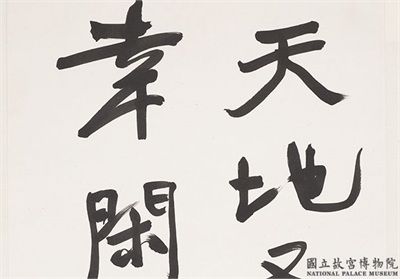 天地
幸閑
國立故宮博物院
NATIONAL PALACE MUSEUM